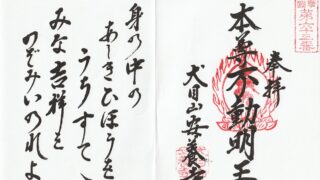 第六十三番
奉拝
本尊不動明王
山安養寺
身の中の
あしきひほうを
うちすてゝ
みな吉祥を
のぞみいのれよ